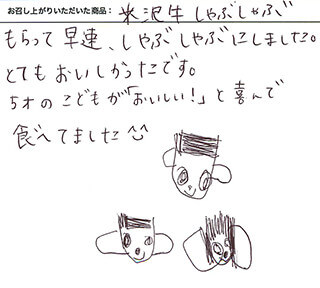 お召し上がりいただいた商品： 米沢牛しゃぶしゃぶ
もらって早速、しゃぶしゃぶにしました。
とてもおいしかったです。
5才のこどもが「おいしい！」と喜んで
食べてました